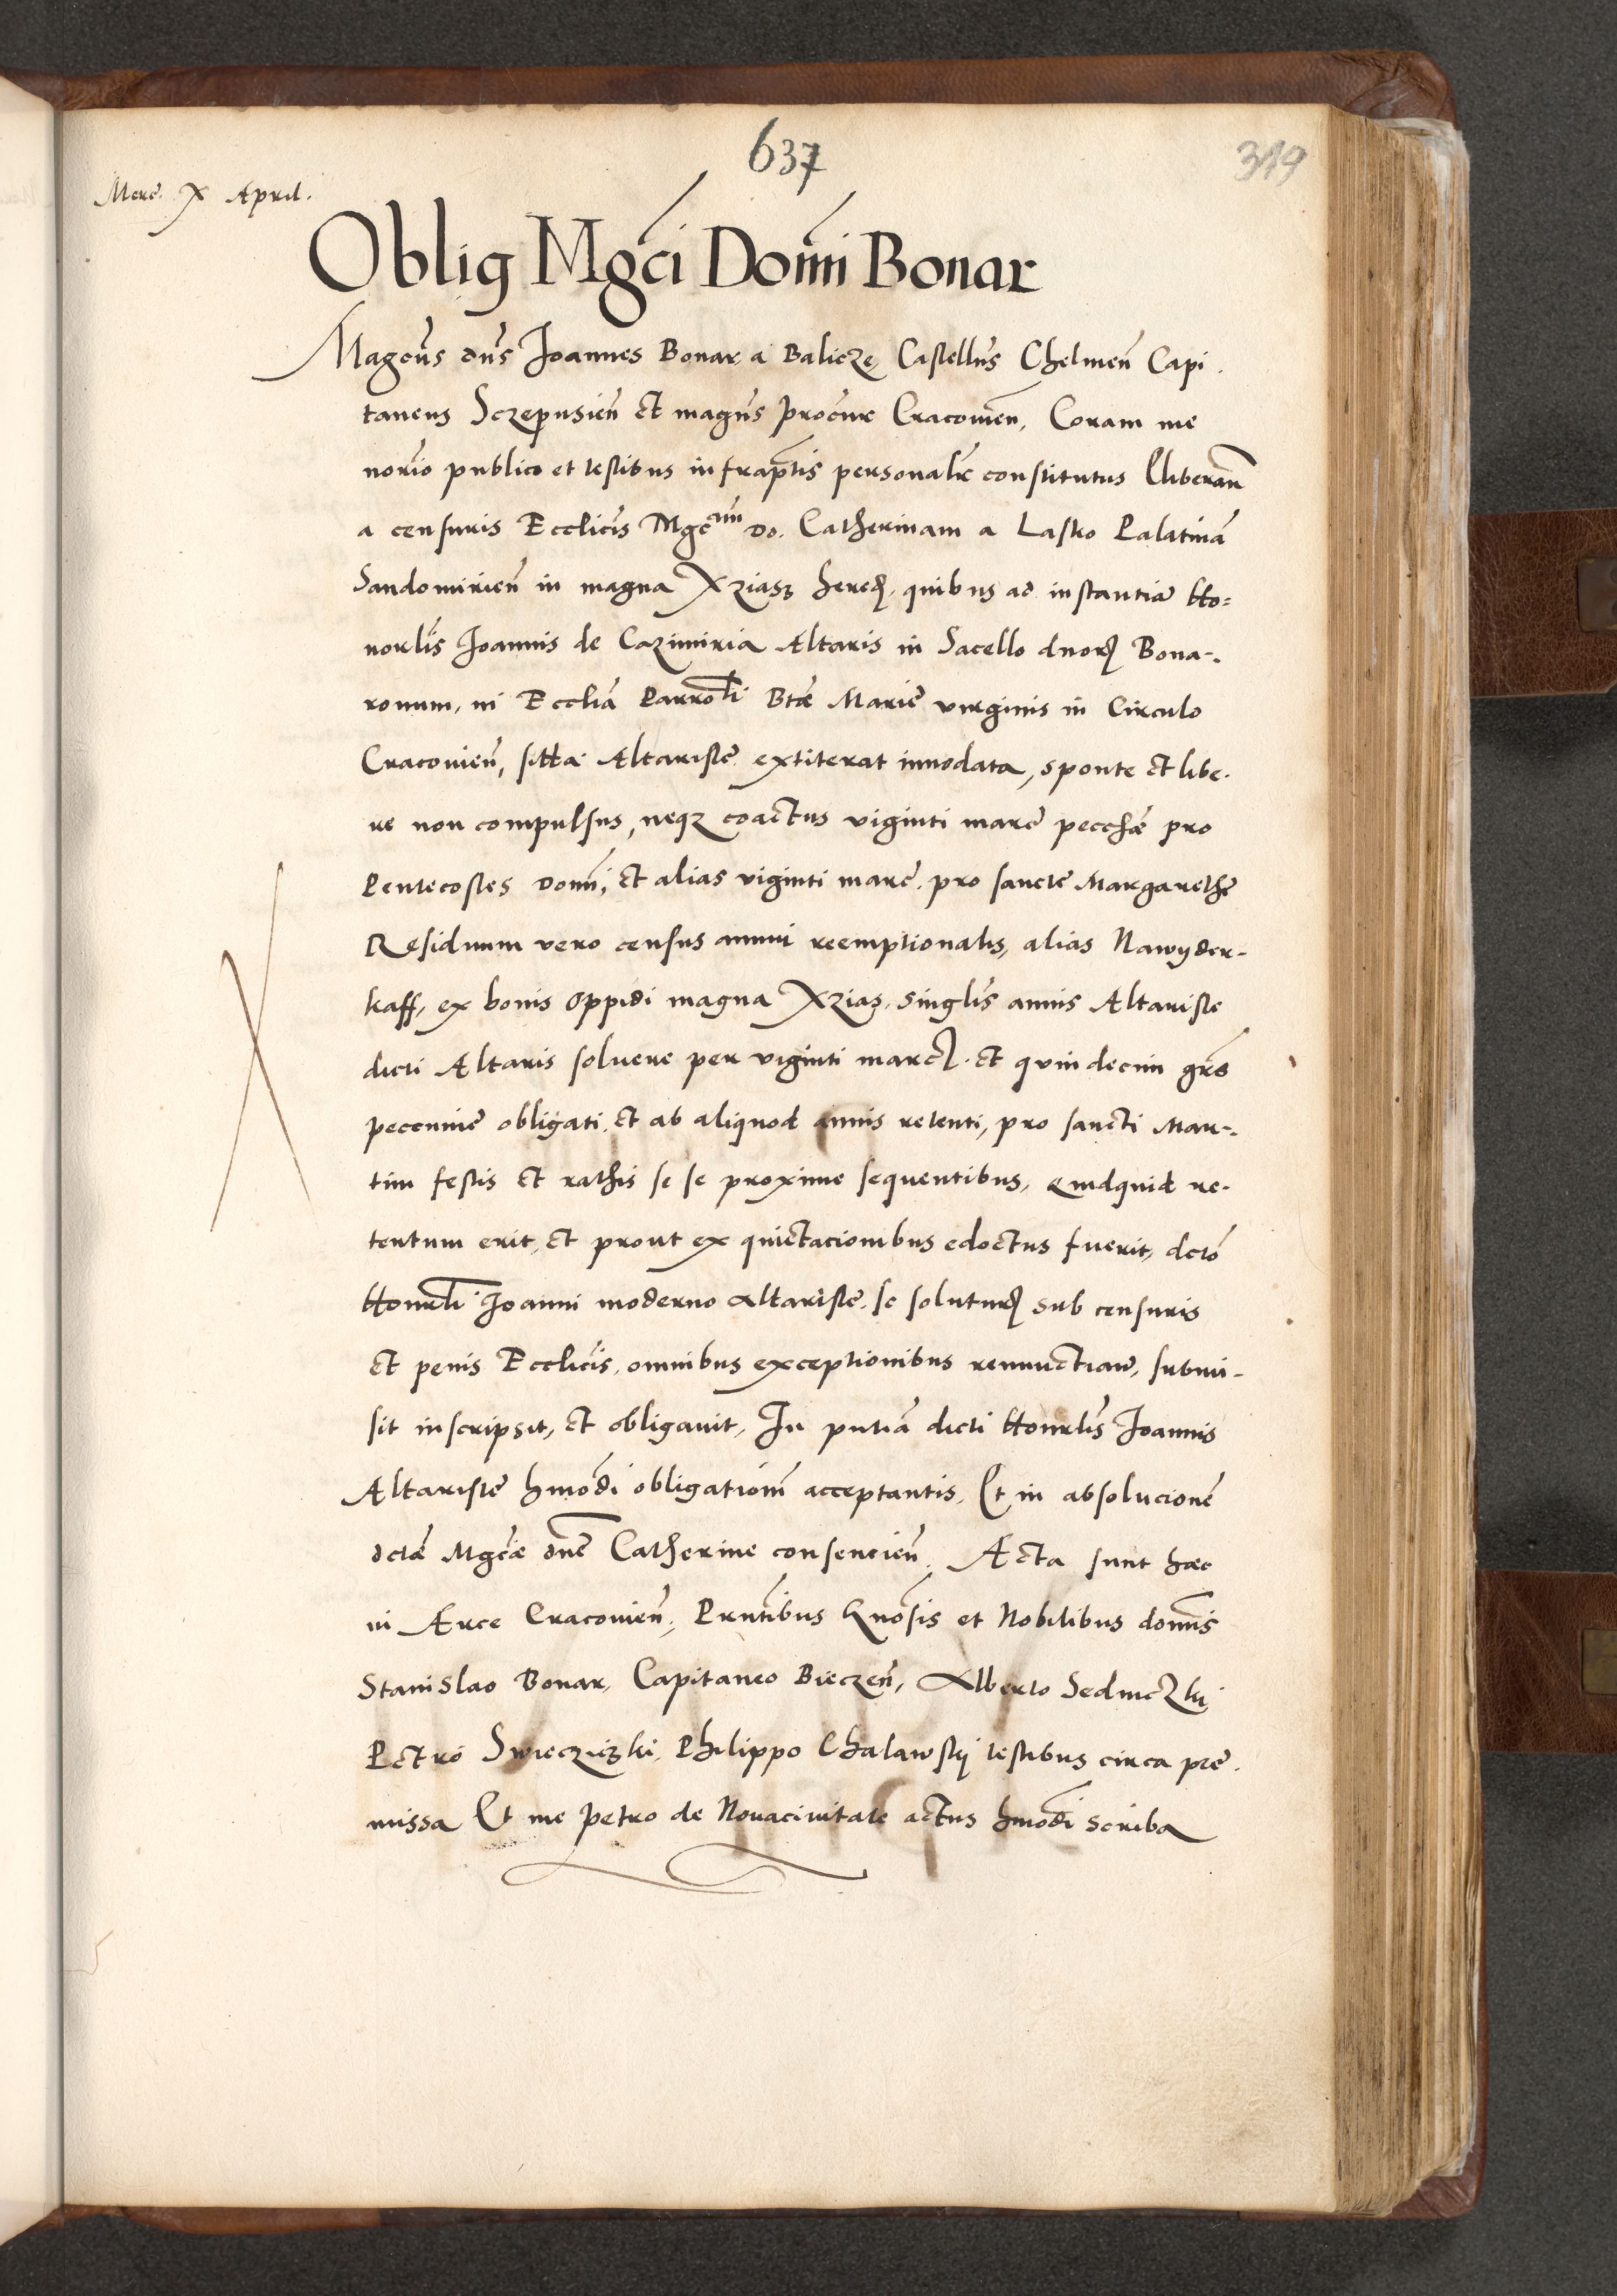 637
319
Merc. X April.
Oblig Mgci Domi Bonar
Magcus dns Joannes Bonar a Balicze Castellns Chelmen Capi
taneus Sczepusien et magnus procur Cracovien, Coram me
norio publico et testibus infraptis personalr constitutus Lliberan
a censuris Ecclicis Mgcam Do. Catherinam a Lasko Palatina
Sandomirien in magna Xziasz hered, quibus ad instantia Ho=
norlis Joannis de Cazimiria Altaris in Sacello dnor Bona-
ronum, in Ecclia Parroli Bte Marie virginis in Circulo
Cracovien, sitta Altariste extiterat innodata, sponte et libe.
re non compulsus, neqz coactus viginti marc pecche pro
Pentecostes Domi, et alias viginti marc. pro sancte Margarethe
Residuum vero census annui reemptionalis, alias Nawyder-
kaff, ex bonis Oppidi magna Xzias, singlis annis Altariste
dicti Altaris soluere per viginti marc. et quindecim gros
peccunie obligati, et ab aliquod annis retenti, pro sancti Mar-
tini festis et rathis se se proxime sequentibus, quidquid re-
tentum erit, et prout ex quictacionibus edoctus fuerit, dcto
Honorli Joanni moderno altariste, se solutur sub censuris
et penis Ecclicis, omnibus exceptionibus renunctian, submi-
sit inscripsit, et obligavit, In pntia dicti Honrlis Joannis
Altariste hmodi obligationem acceptantis, Et in absolucione
dcte Mgce dne Catherine consencien. Acta sunt haec
in Arce Cracovien, Prntibus Gnosis et Nobilibus domis
Stanislao Bonar, Capitaneo Bieczen, Alberto Sedniczki
Petro Swieczizki, Philippo Chalawskÿ testibus circa pre
missa Et me Petro de Novacivitate actus hmodi scriba